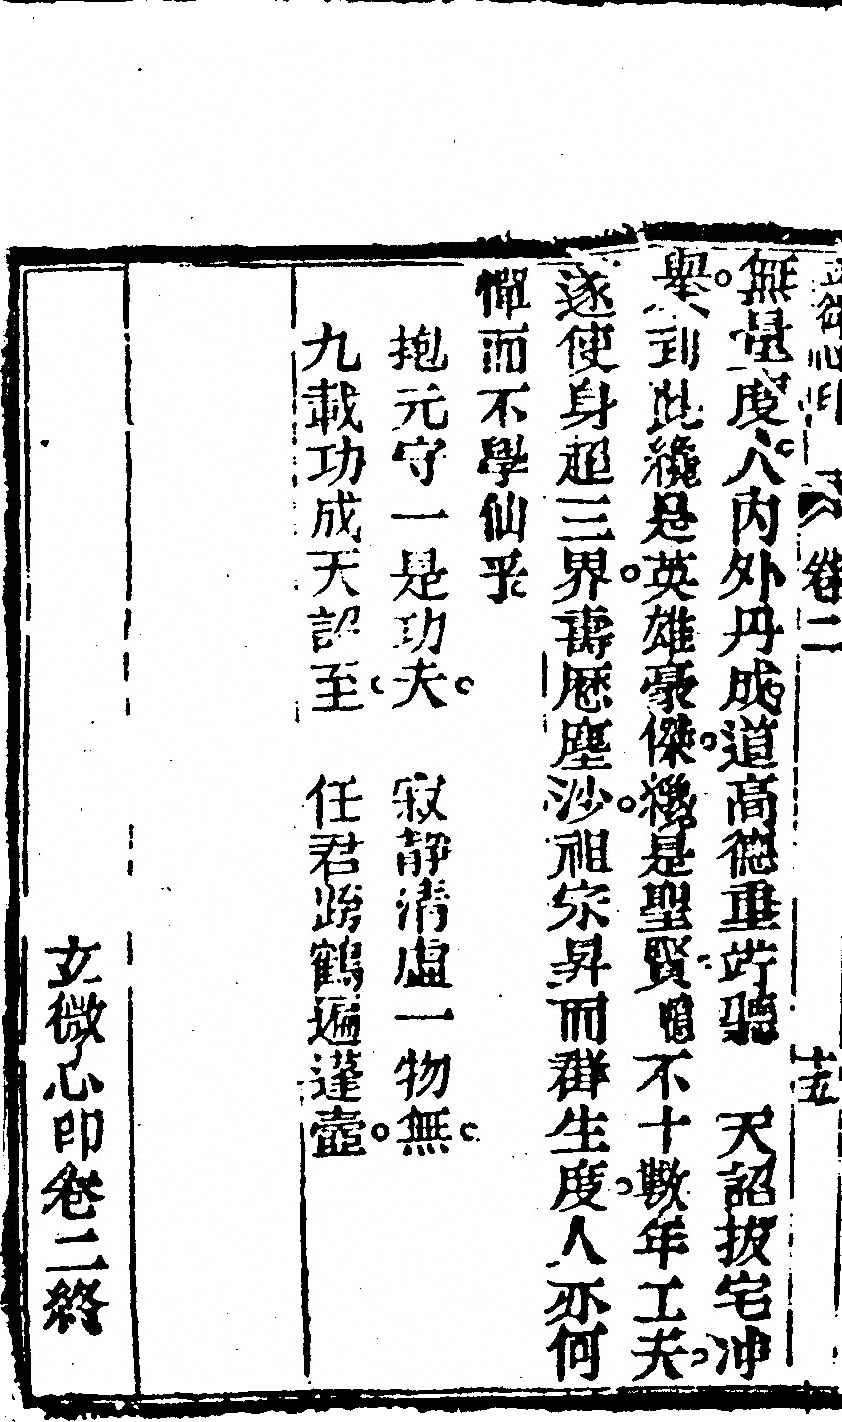 玄微心印 卷二 十五
無量度人內外丹成道高德重竚聽 天詔拔宅冲
舉。人到此纔是英雄豪傑。纔是聖賢。噫不十數年工夫。
遂使身超三界。壽歷塵沙。祖宗昇而群生度。人亦何
憚而不學仙乎
抱元守一是功夫。 寂靜清虛一物無。
九載功成天詔至。 任君跨鶴遍蓬壺。
玄微心印卷二終